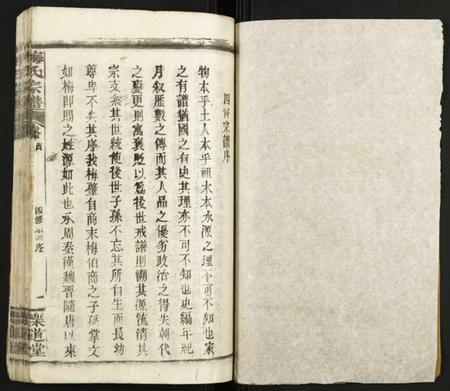 四修宗譜序
物本乎土人本乎祖水木本源之理不可不知也家
之有譜猶國之有史其理亦不可不知也史編年紀
月叙歷數之傳而其人品之優劣政治之得失朝代
之變更則寓褒貶以爲後世戒譜則溯其源流清其
宗支彖其世統使後世子孫不忘其所自生而長幼
尊卑不失其序我梅肇自商末梅伯商之子孫掌文
如梅即賜之姓源如此也永周秦漢魏晋隨唐以來
梅氏宗譜
四修宗譜序
一
樂道堂